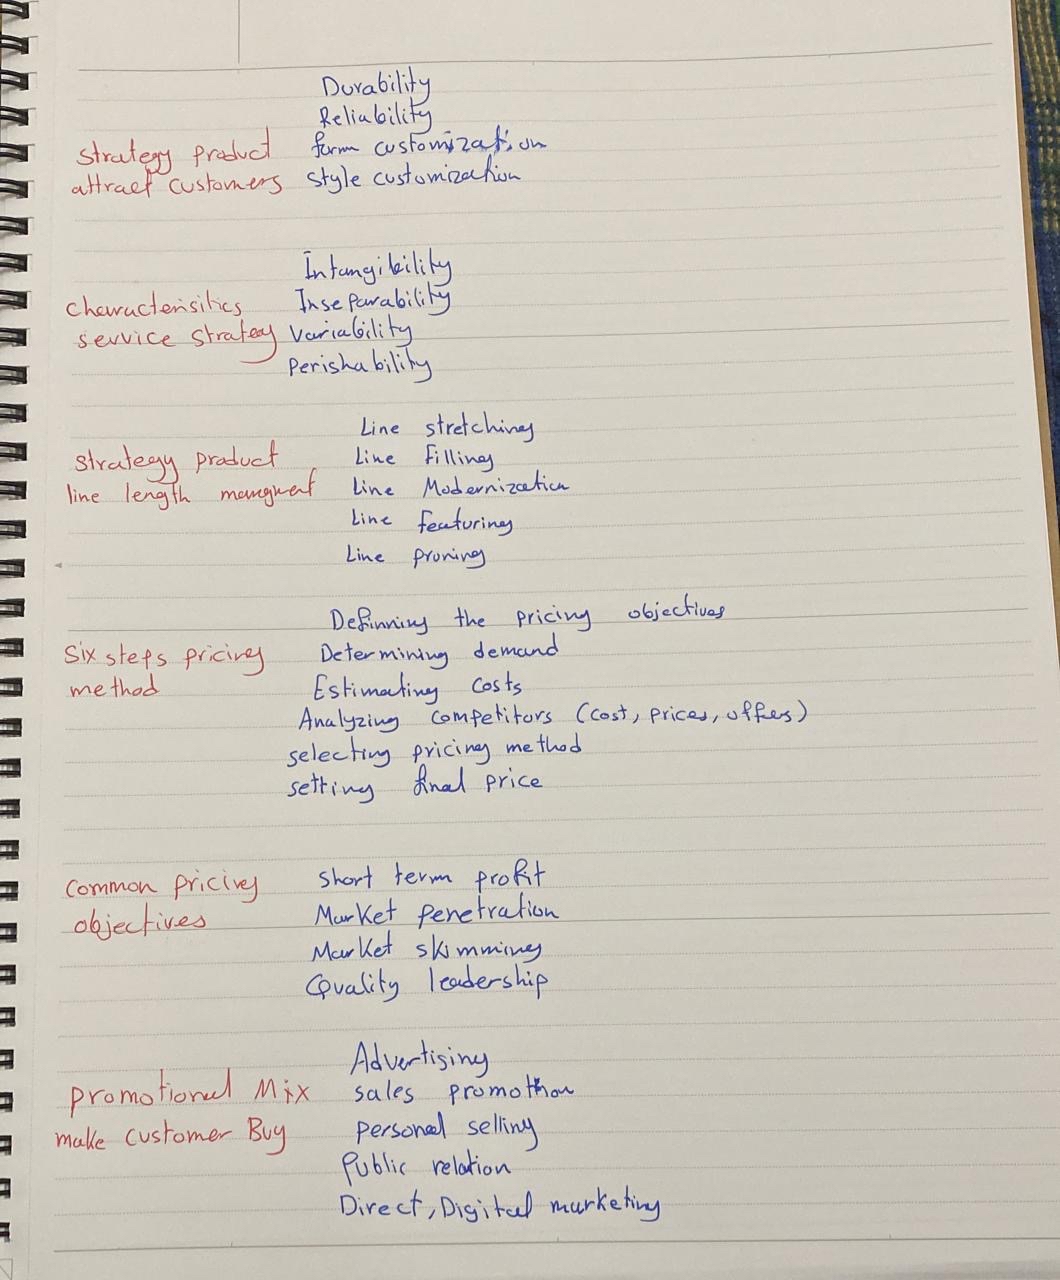 Durability
Reliability
strategy product form customization
attract customers style customization
Intangibility
characterisitics Inseparability
service strategy variability
perishability
Line stretching
strategy product Line Filling
line length mangment Line Modernization
Line featuring
Line pruning
Definning the pricing objectives
Six steps pricing Determining demand
method Estimating costs
Analyzing competitors (cost, prices, offres)
selecting pricing method
setting final price
common pricing short term profit
objectives Market penetration
Market skimming
Quality leadership
Advertising
promotional Mix sales promotion
make customer Buy personal selling
Public relation
Direct, Digital marketing